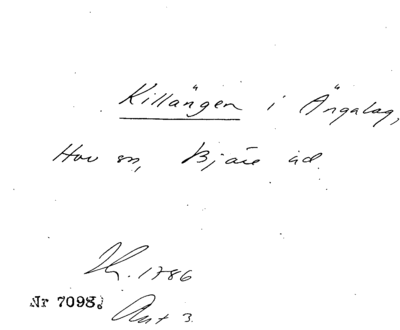 Killängen i Ängalag,
Hov sn, Bjäre hd.
H. 1786
Nr 7098. Akt 3.